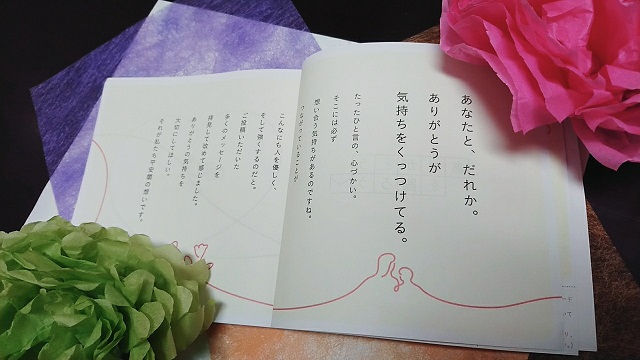 あなたと、だれか。
ありがとうが
気持ちをくっつけてる。
たったひと言の、心づかい。
そこには必ず
想い合う気持ちがあるのですね。
つながっていることが
こんなにも人を優しく、
そして強くするのだと。
ご投稿いただいた
多くのメッセージを
拝見して改めて感じました。
ありがとうの気持ちを
大切にしてほしい。
それが私たち平安閣の想いです。